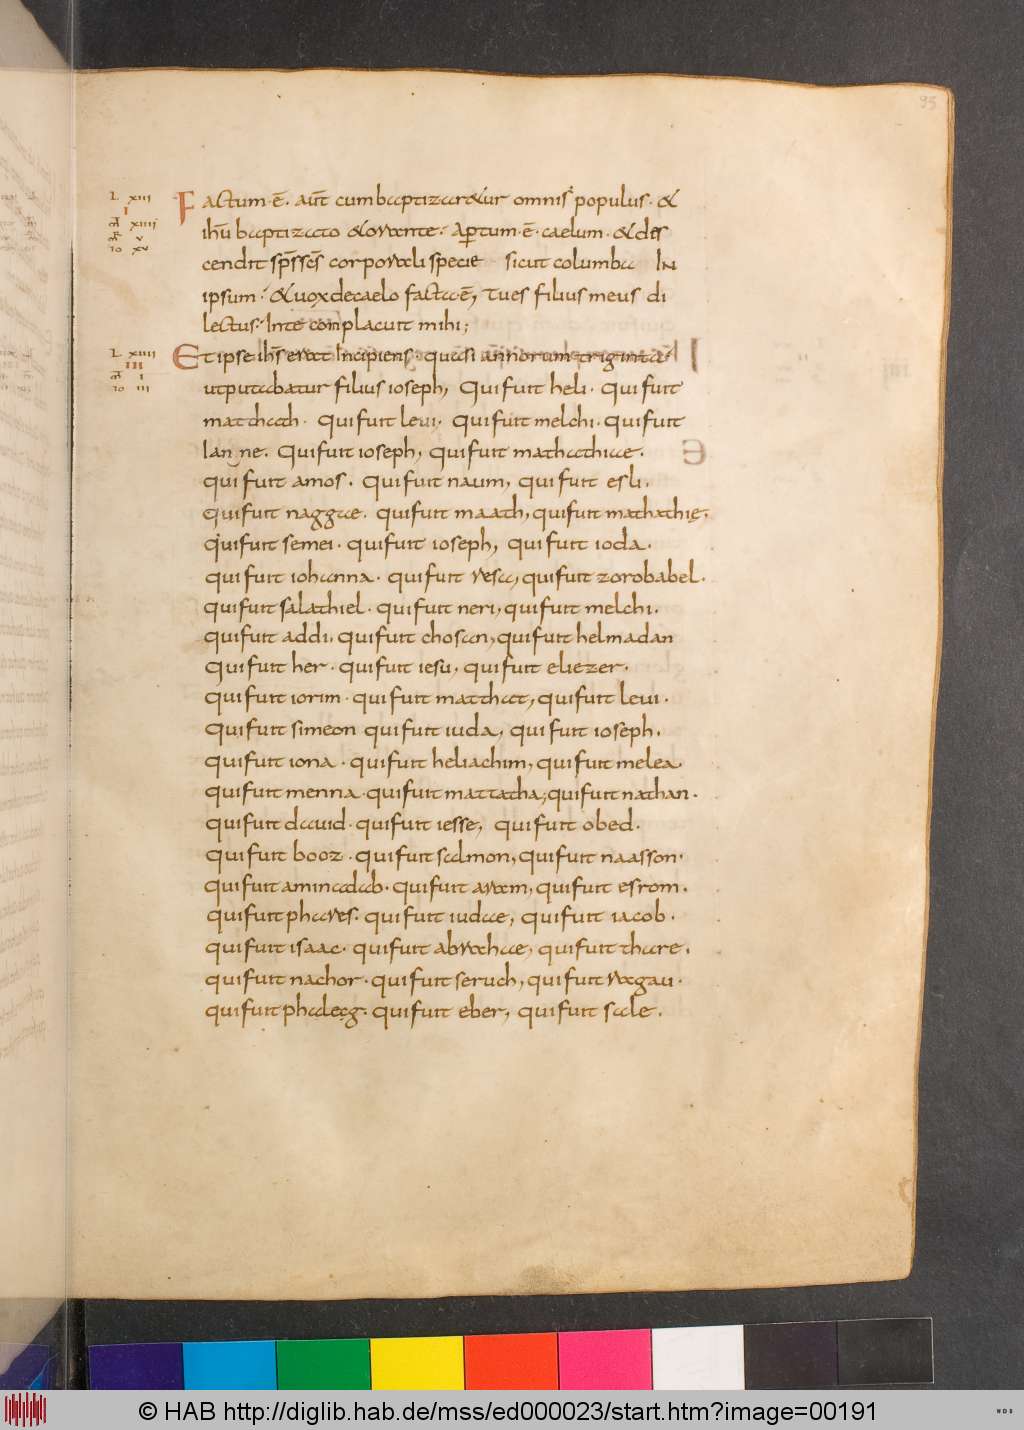 95
L xiii
I
mt xiiii
mr v
io xv
Factum·ē· aut̄ cum baptizaretur omnis populus· &
ihū baptizato & orante· Apertum·ē· caelum· & des
cendit sp̄s sc̄s corporali specie sicut columba In
ipsum· & uox de caelo facta·ē, Tu es filius meus di
lectus· In te conplacuit mihi;
L xiiii
III
mt i
io iii
Et ipse ihs̄ erat Incipiens· quasi annorum triginta·
ut putabatur filius ioseph, Qui fuit heli· Qui fuit
matthath· Qui fuit leui· Qui fuit melchi· Qui fuit
lan ne. Qui fuit ioseph, qui fuit mathathiae·
qui fuit amos. Qui fuit naum, qui fuit esli.
Qui fuit naggae. qui fuit maath, qui fuit mathathię.
Qui fuit semei· qui fuit ioseph, qui fuit ioda.
qui fuit iohanna· qui fuit resa, qui fuit zorobabel.
qui fuit salathiel· qui fuit neri, qui fuit melchi.
qui fuit addi. qui fuit chosan, qui fuit helmadan
qui fuit her· qui fuit iesu. qui fuit eliezer·
qui fuit iorim· qui fuit matthat, qui fuit leui.
qui fuit simeon qui fuit iuda, qui fuit ioseph.
qui fuit iona· qui fuit heliachim, qui fuit melea·
qui fuit menna· qui fuit mattatha, qui fuit nathan.
qui fuit dauid· qui fuit iesse, qui fuit obed·
qui fuit booz· qui fuit salmon, qui fuit naasson·
qui fuit aminadab· qui fuit aram, qui fuit esrom.
qui fuit phares· qui fuit iudae, qui fuit iacob.
qui fuit isaac· qui fuit abrahae, qui fuit thare.
qui fuit nachor· qui fuit seruch, qui fuit ragau·
qui fuit phalecg· qui fuit eber, qui fuit sale.
© HAB http://diglib.hab.de/mss/ed000023/start.htm?image=00191
WDB